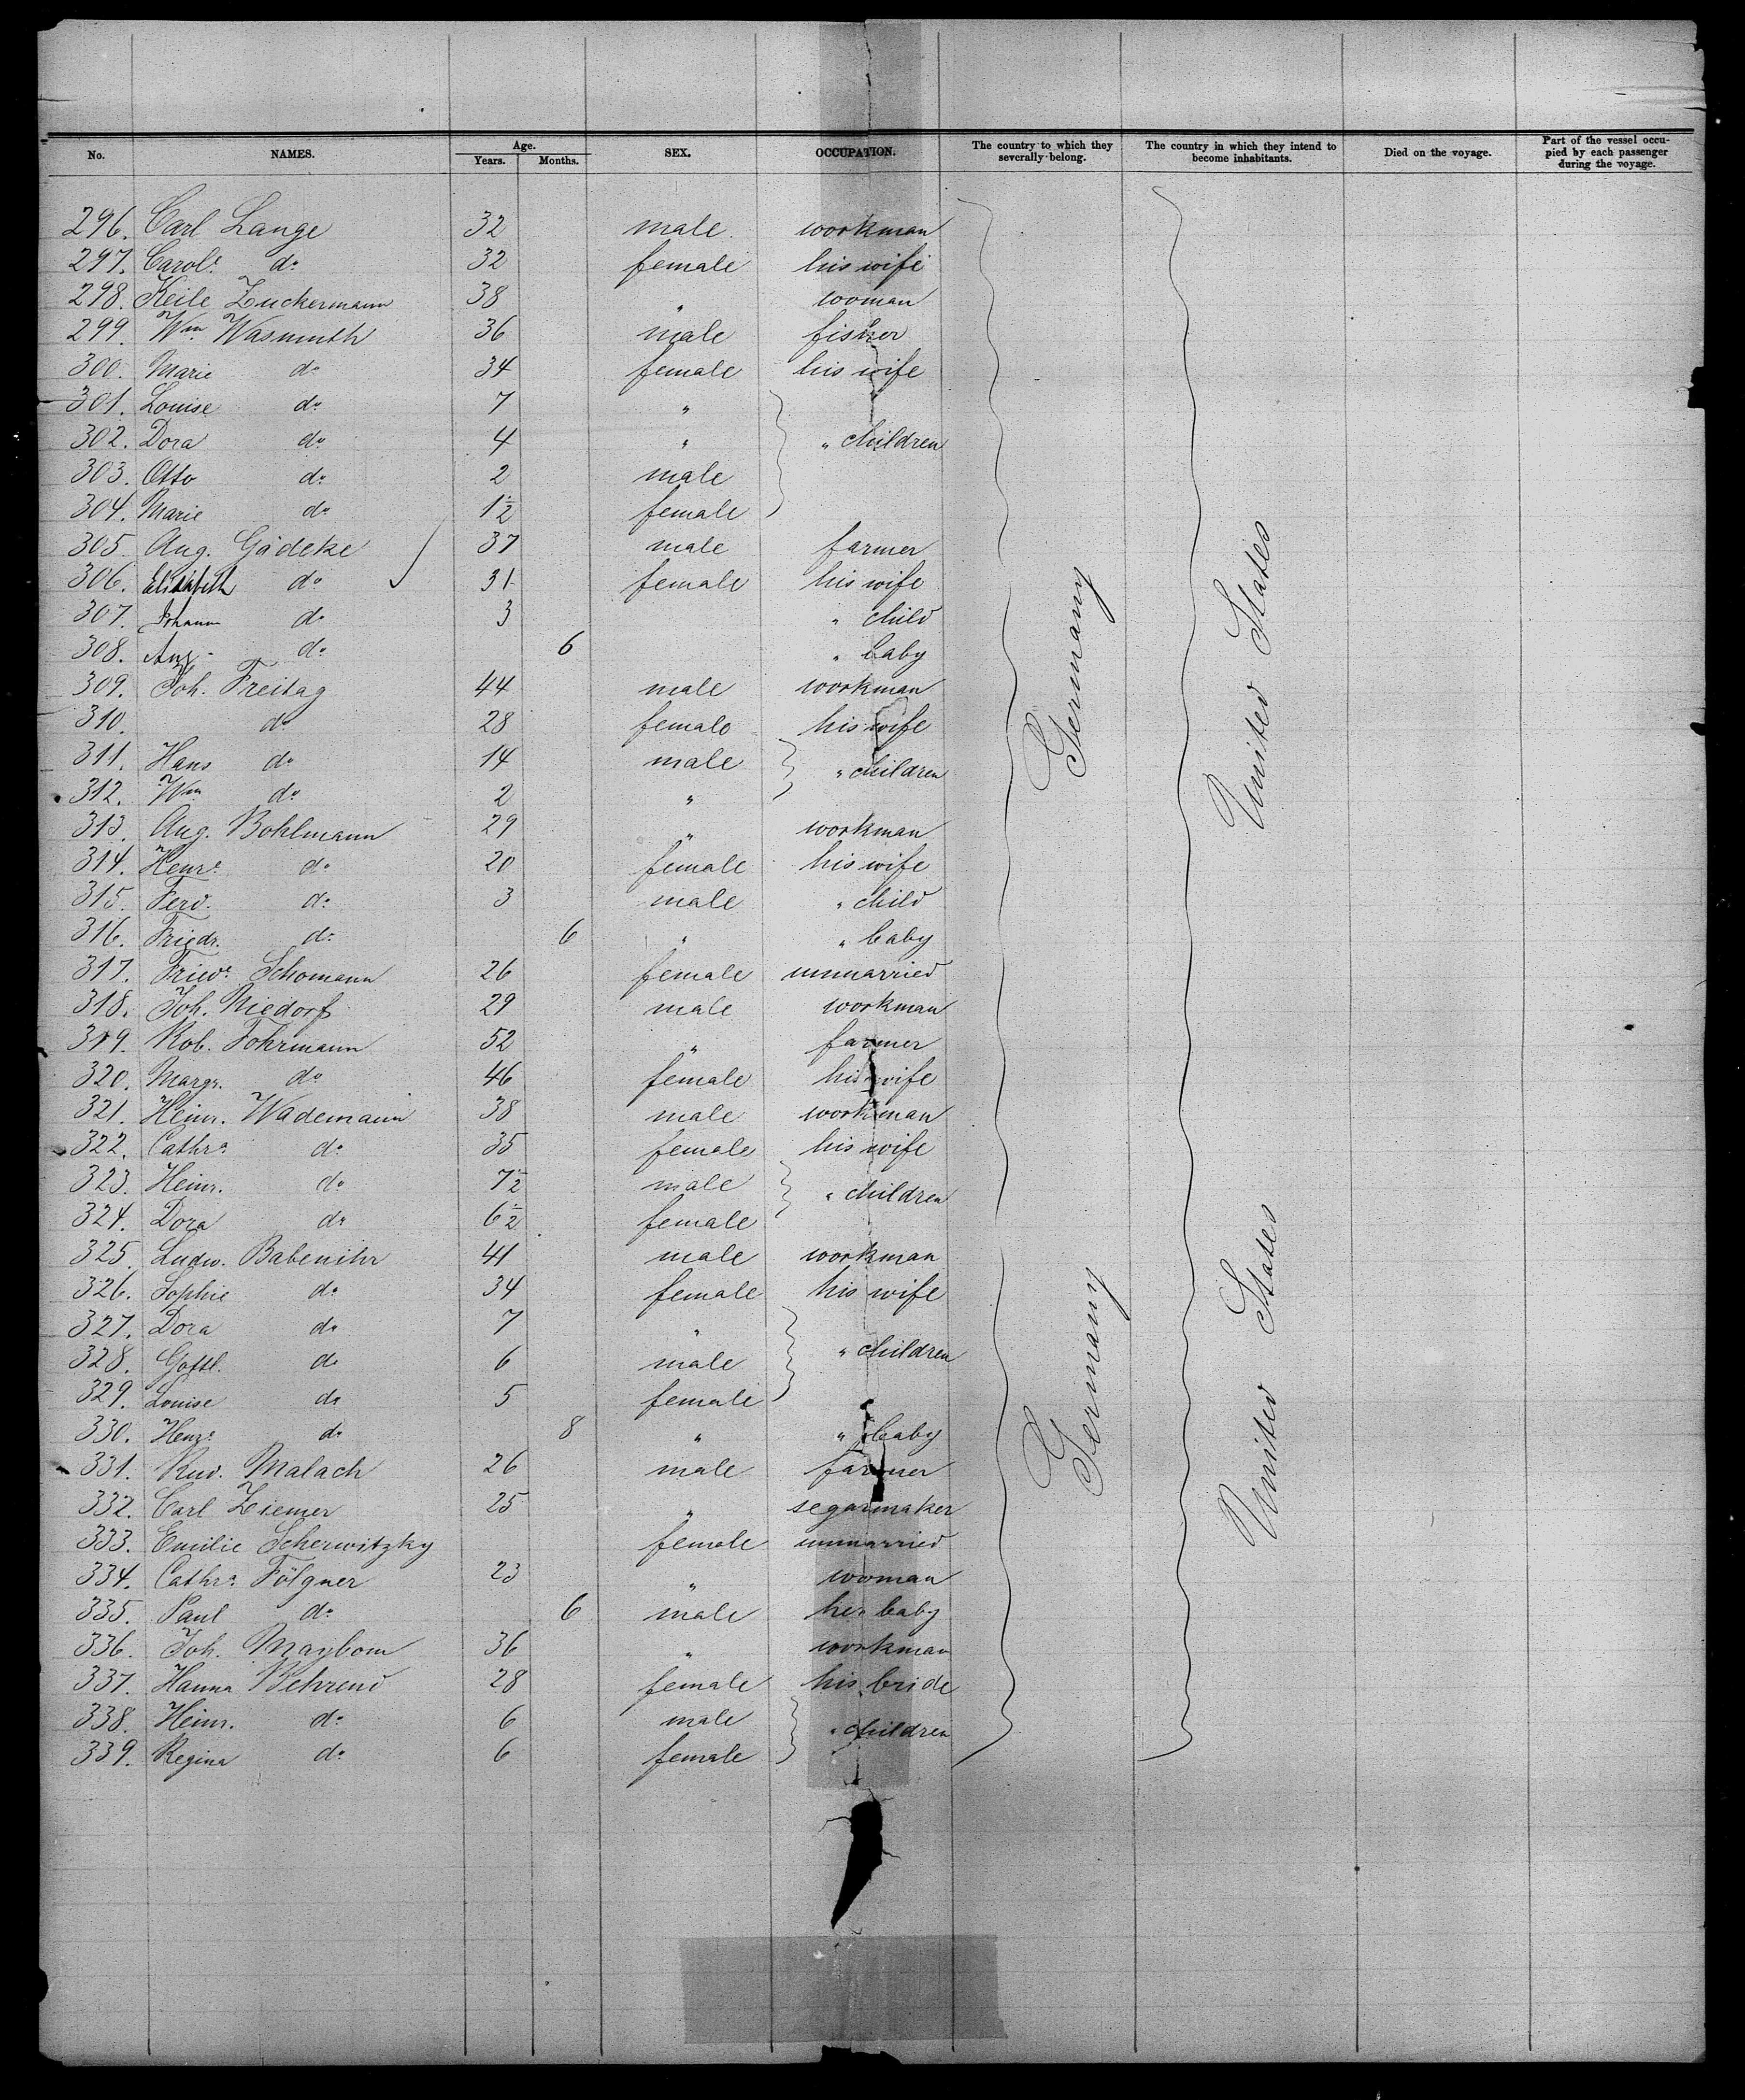 No. NAMES. Age. Years. Months. SEX. OCCUPATION. The country to which they severally belong. The country in which they intend to become inhabitants. Died on the voyage. Part of the vessel occupied by each passenger during the voyage.
296. Carl Lange 32 male workman
297. Carole do 32 female his wife
298. Keile Zuckermann 38 " woman
299. Wm. Wasmuth 36 male fisher
300. Marie do 34 female his wife
301. Louise do 7 "
302. Dora do 4 " " children
303. Otto do 2 male
304. Marie do 1 1/2 female
305. Aug. Gädeke 37 male farmer
306. Elisabeth do 31 female his wife
307. Johann do 3 " child
308. Aug. do 6 " baby
309. Joh. Freitag 44 male workman
310. do 28 female his wife
311. Hans do 14 male " children
312. Wm do 2 "
313. Aug. Bohlmann 29 " workman
314. Henre do 20 female his wife
315. Ferd. do 3 male " child
316. Friedr. do 6 " " baby
317. Friede Schomann 26 female unmarried
318. Joh. Niedorf 29 male workman
319. Rob. Fohrmann 52 " farmer
320. Margr. do 46 female his wife
321. Heinr. Wademann 38 male workman
322. Cathra do 35 female his wife
323. Heinr. do 7 1/2 male " children
324. Dora do 6 1/2 female
325. Ludw. Babenihr 41 male workman
326. Sophie do 34 female his wife
327. Dora do 7 "
328. Gottl. do 6 male " children
329. Louise do 5 female
330. Henre do 8 " " baby
331. Rud. Malach 26 male farmer
332. Carl Ziemer 25 " segarmaker
333. Emilie Scherwitzky female unmarried
334. Cathra Fölgner 23 " woman
335. Paul do 6 male her baby
336. Joh. Maybom 36 " workman
337. Hanna Behrend 28 female his bride
338. Heinr. do 6 male " children
339. Regina do 6 female
Germany
United States
Germany
United States